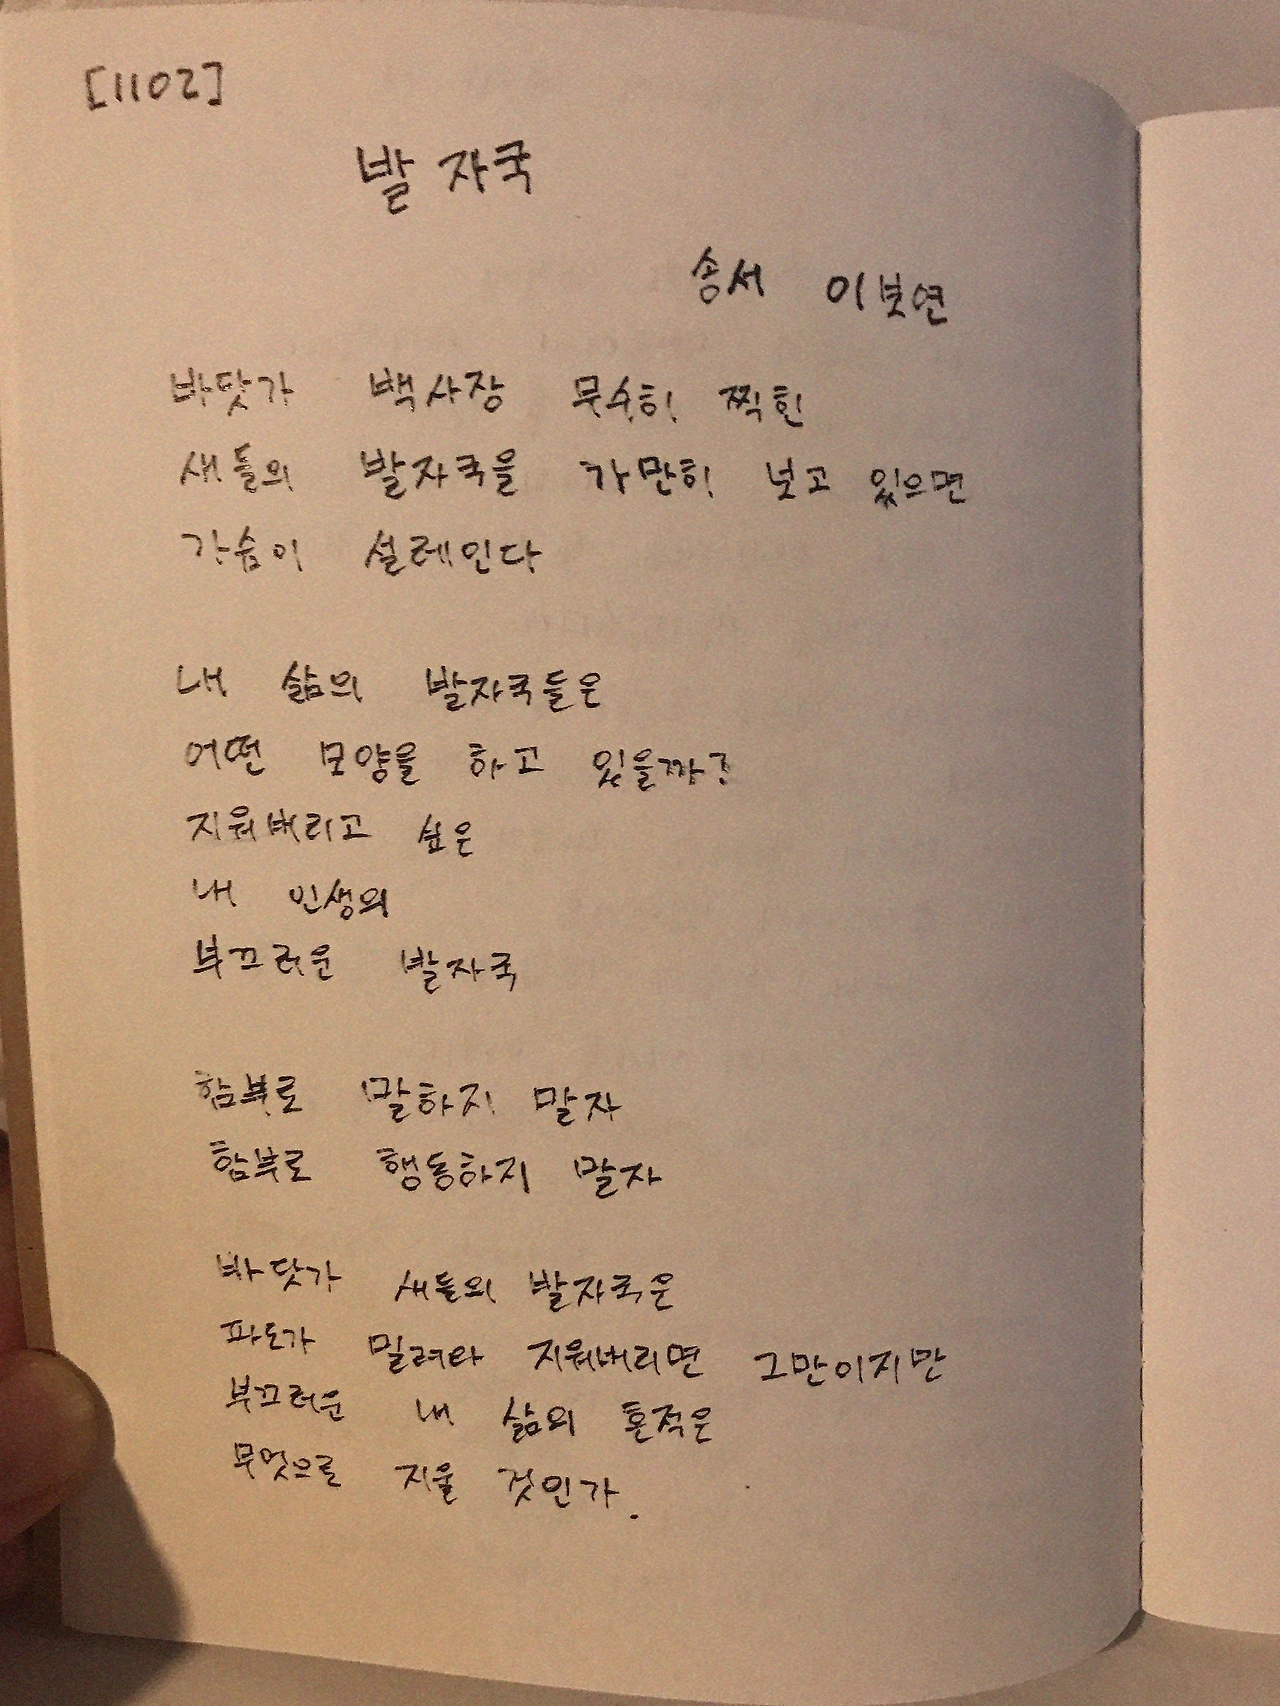 [1102]
발자국
송서 이보연
바닷가 백사장 무수히 찍힌
새들의 발자국을 가만히 보고 있으면
가슴이 설레인다
내 삶의 발자국들은
어떤 모양을 하고 있을까?
지워버리고 싶은
내 인생의
부끄러운 발자국
함부로 말하지 말자
함부로 행동하지 말자
바닷가 새들의 발자국은
파도가 밀려와 지워버리면 그만이지만
부끄러운 내 삶의 흔적은
무엇으로 지울 것인가.